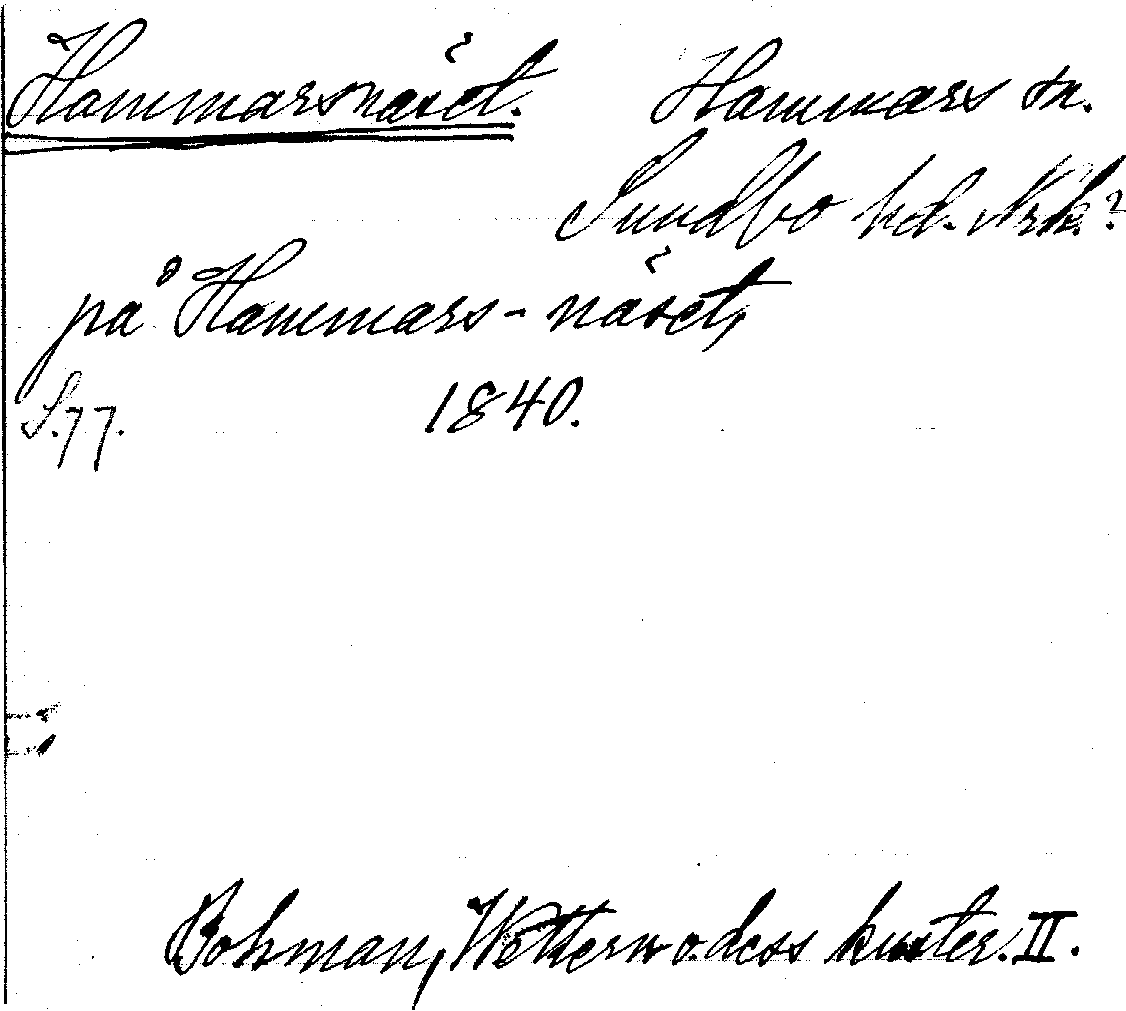 Hammarsnäset. Hammars sn.
Sundbo hd. Nrk?
på Hammars-näset,
S. 77. 1840.
Bohman, Wettern o. dess kuster. II.